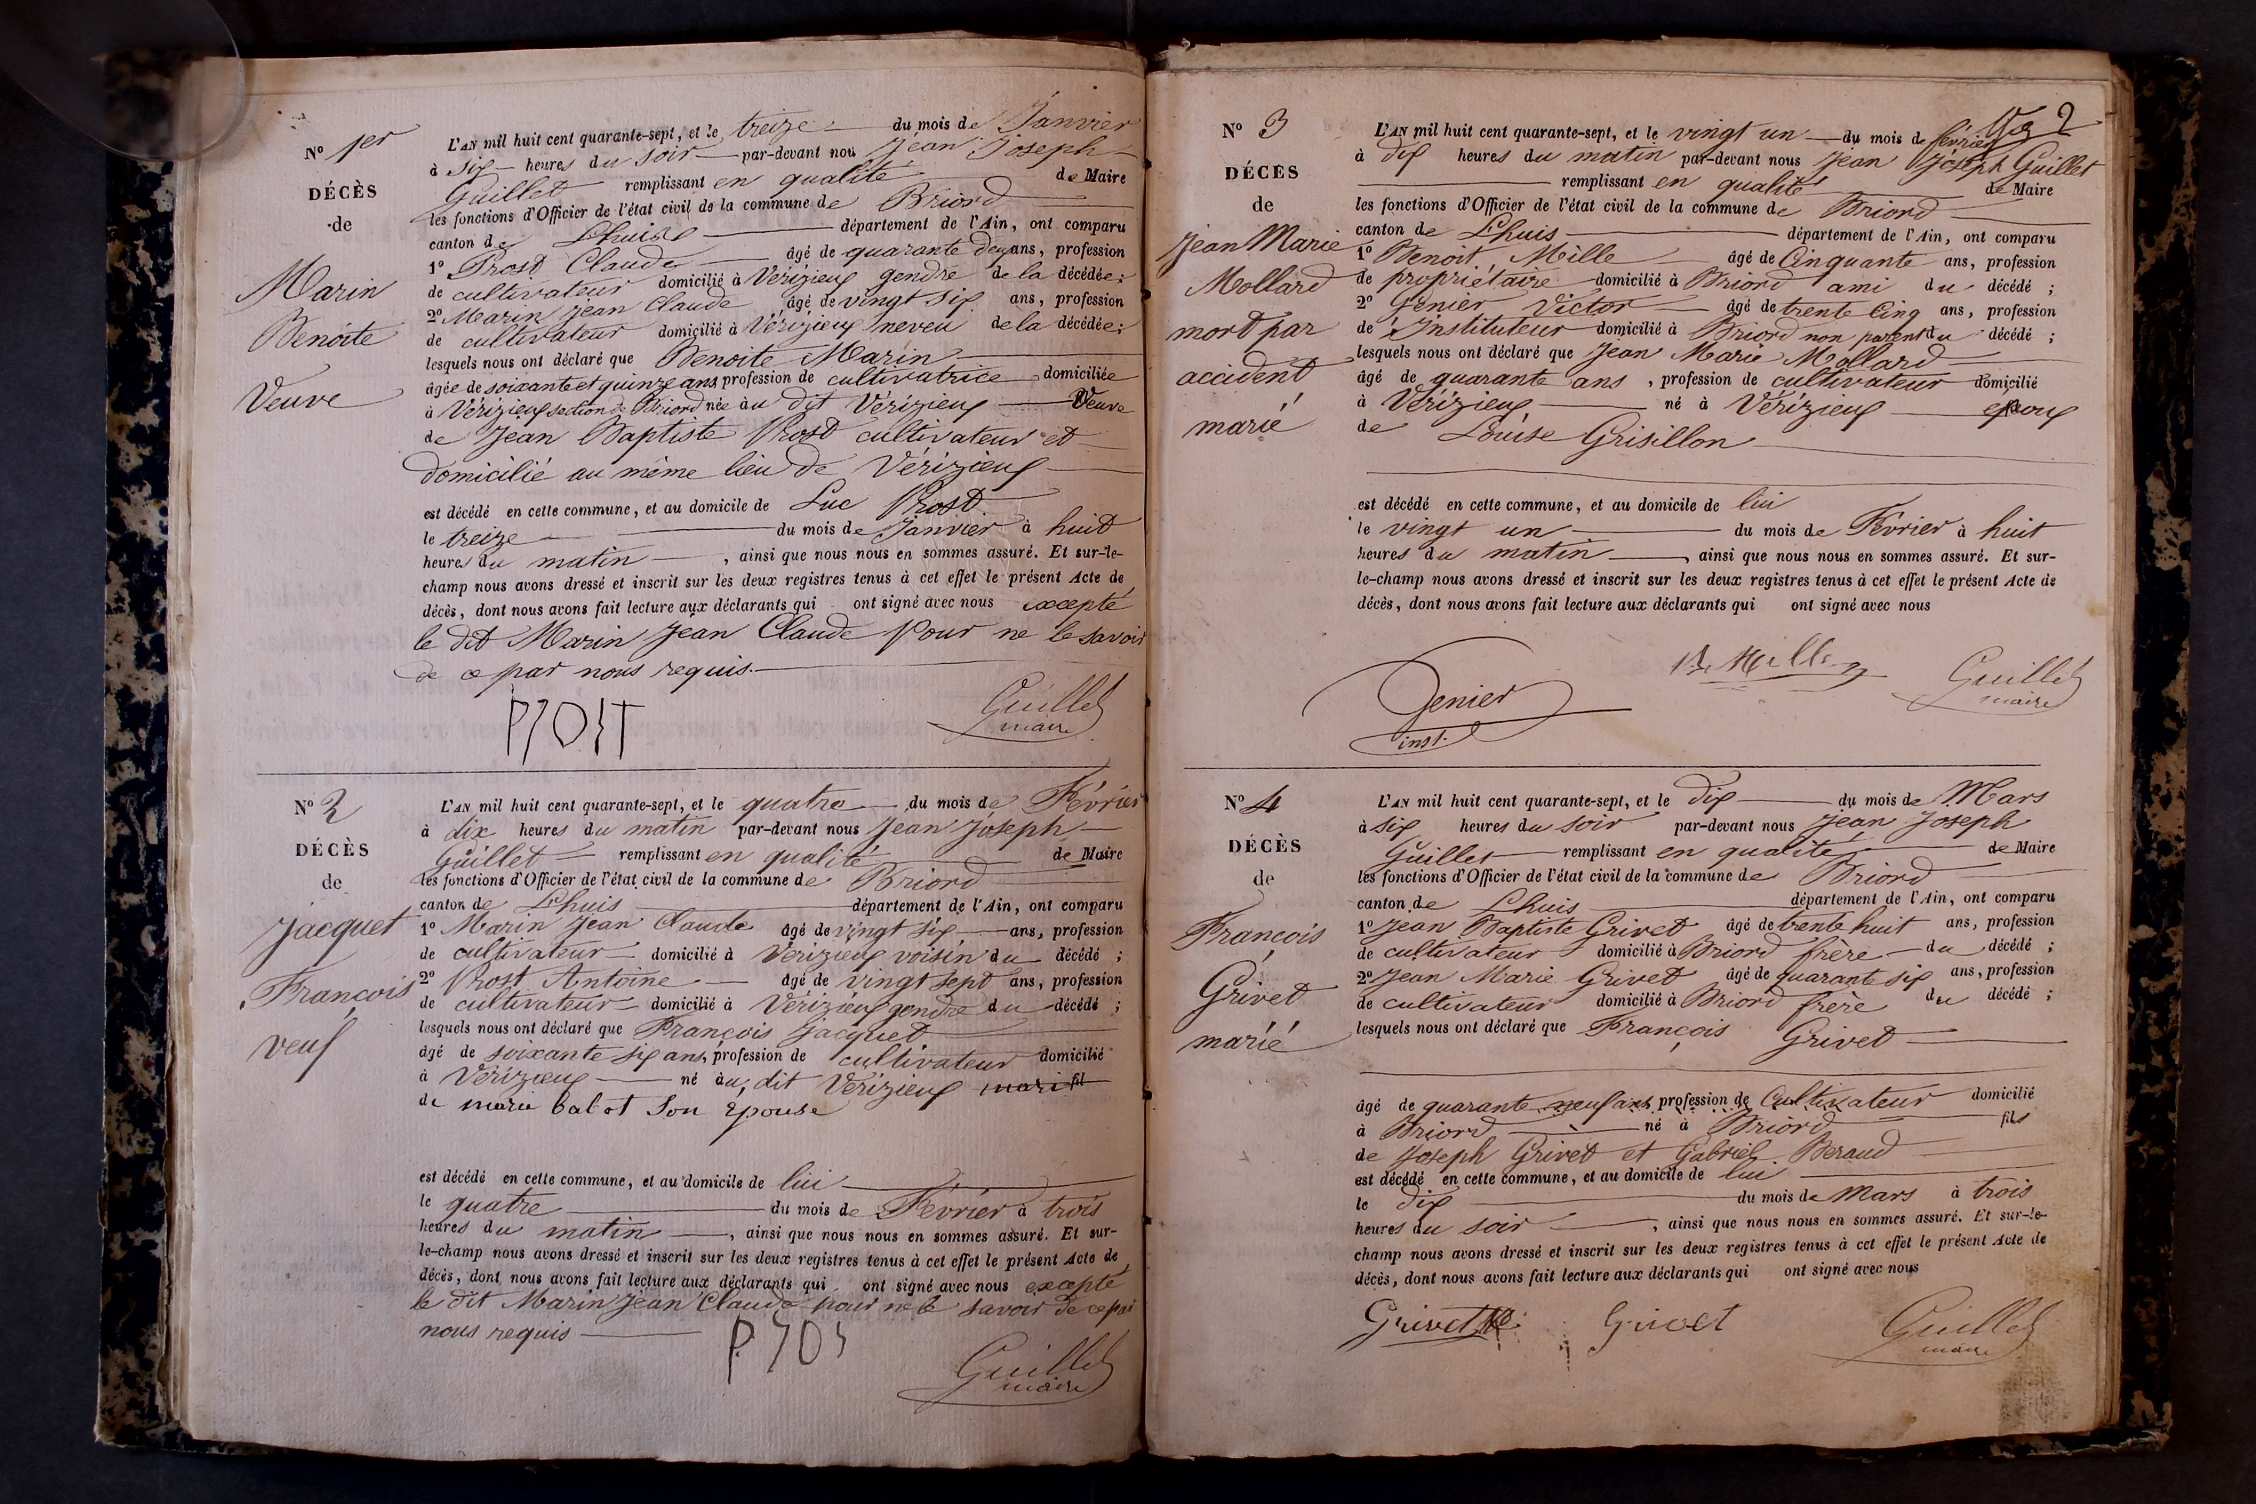 N° 1er
DÉCÈS
de
Marin
Benoite
Veuve
L'AN mil huit cent quarante-sept, et le treize du mois de Janvier
à six heures du soir par-devant nous Jean Joseph
Guillet remplissant en qualité de Maire
les fonctions d'Officier de l'état civil de la commune de Briord
canton de Lhuis département de l'Ain, ont comparu
1° Prost Claude âgé de quarante deux ans, profession
de cultivateur domicilié à Vérizieux gendre de la décédée;
2° Marin Jean Claude âgé de vingt six ans, profession
de cultivateur domicilié à Vérizieux neveu de la décédée;
lesquels nous ont déclaré que Benoite Marin
âgée de soixante et quinze ans profession de cultivatrice domiciliée
à Vérizieux section de Briord née au dit Vérizieux Veuve
de Jean Baptiste Prost cultivateur et
domicilié au même lieu de Vérizieux
est décédé en cette commune, et au domicile de Luc Prost
le treize du mois de Janvier à huit
heures du matin, ainsi que nous nous en sommes assuré. Et sur-le-
champ nous avons dressé et inscrit sur les deux registres tenus à cet effet le présent Acte de
décès, dont nous avons fait lecture aux déclarants qui ont signé avec nous excepté
le dit Marin Jean Claude pour ne le savoir
de ce par nous requis.
PROST Guillet
maire
N° 2
DÉCÈS
de
Jacquet
François
veuf
L'AN mil huit cent quarante-sept, et le quatre du mois de Février
à dix heures du matin par-devant nous Jean Joseph
Guillet remplissant en qualité de Maire
les fonctions d'Officier de l'état civil de la commune de Briord
canton de Lhuis département de l'Ain, ont comparu
1° Marin Jean Claude âgé de vingt six ans, profession
de cultivateur domicilié à Vérizieux voisin du décédé;
2° Prost Antoine âgé de vingt sept ans, profession
de cultivateur domicilié à Vérizieux gendre du décédé;
lesquels nous ont déclaré que François Jacquet
âgé de soixante six ans, profession de cultivateur domicilié
à Vérizieux né au dit Vérizieux mari fil
de marie babot son épouse
est décédé en cette commune, et au domicile de lui
le quatre du mois de Février à trois
heures du matin, ainsi que nous nous en sommes assuré. Et sur-
le-champ nous avons dressé et inscrit sur les deux registres tenus à cet effet le présent Acte de
décès, dont nous avons fait lecture aux déclarants qui ont signé avec nous excepté
le dit Marin Jean Claude pour ne le savoir de ce par
nous requis
PROS Guillet
maire
2
N° 3
DÉCÈS
de
Jean Marie
Mollard
mort par
accident
marié
L'AN mil huit cent quarante-sept, et le vingt un du mois de février
à dix heures du matin par-devant nous Jean Joseph Guillet
remplissant en qualité de Maire
les fonctions d'Officier de l'état civil de la commune de Briord
canton de Lhuis département de l'Ain, ont comparu
1° Benoit Mille âgé de Cinquante ans, profession
de propriétaire domicilié à Briord ami du décédé;
2° Genier Victor âgé de trente Cinq ans, profession
de Instituteur domicilié à Briord non parent du décédé;
lesquels nous ont déclaré que Jean Marie Mollard
âgé de quarante ans, profession de cultivateur domicilié
à Vérizieux né à Vérizieux epoux
de Louise Grisillon
est décédé en cette commune, et au domicile de lui
le vingt un du mois de Février à huit
heures du matin, ainsi que nous nous en sommes assuré. Et sur-
le-champ nous avons dressé et inscrit sur les deux registres tenus à cet effet le présent Acte de
décès, dont nous avons fait lecture aux déclarants qui ont signé avec nous
Genier B. Mille Guillet
inst. maire
N° 4
DÉCÈS
de
François
Grivet
marié
L'AN mil huit cent quarante-sept, et le dix du mois de Mars
à six heures du soir par-devant nous Jean Joseph
Guillet remplissant en qualité de Maire
les fonctions d'Officier de l'état civil de la commune de Briord
canton de Lhuis département de l'Ain, ont comparu
1° Jean Baptiste Grivet âgé de trente huit ans, profession
de cultivateur domicilié à Briord frère du décédé;
2° Jean Marie Grivet âgé de quarante six ans, profession
de cultivateur domicilié à Briord frère du décédé;
lesquels nous ont déclaré que François Grivet
âgé de quarante neuf ans, profession de Cultivateur domicilié
à Briord né à Briord fils
de Joseph Grivet et Gabriel Beraud
est décédé en cette commune, et au domicile de lui
le dix du mois de Mars à trois
heures du soir, ainsi que nous nous en sommes assuré. Et sur-le-
champ nous avons dressé et inscrit sur les deux registres tenus à cet effet le présent Acte de
décès, dont nous avons fait lecture aux déclarants qui ont signé avec nous
Grivet Grivet Guillet
maire